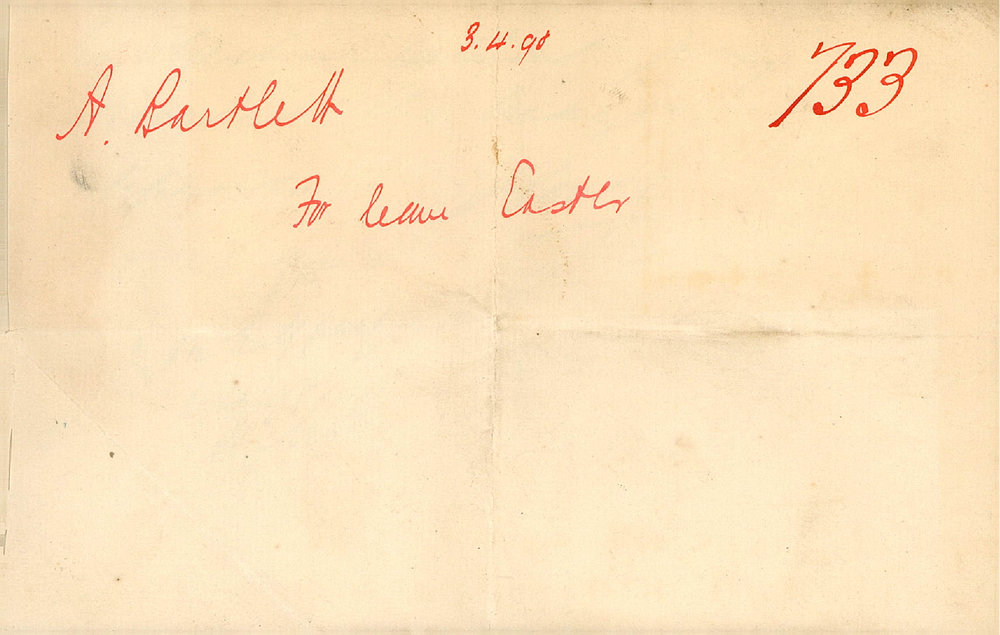 3.4.90
733
A. Bartlett
For leave Easter